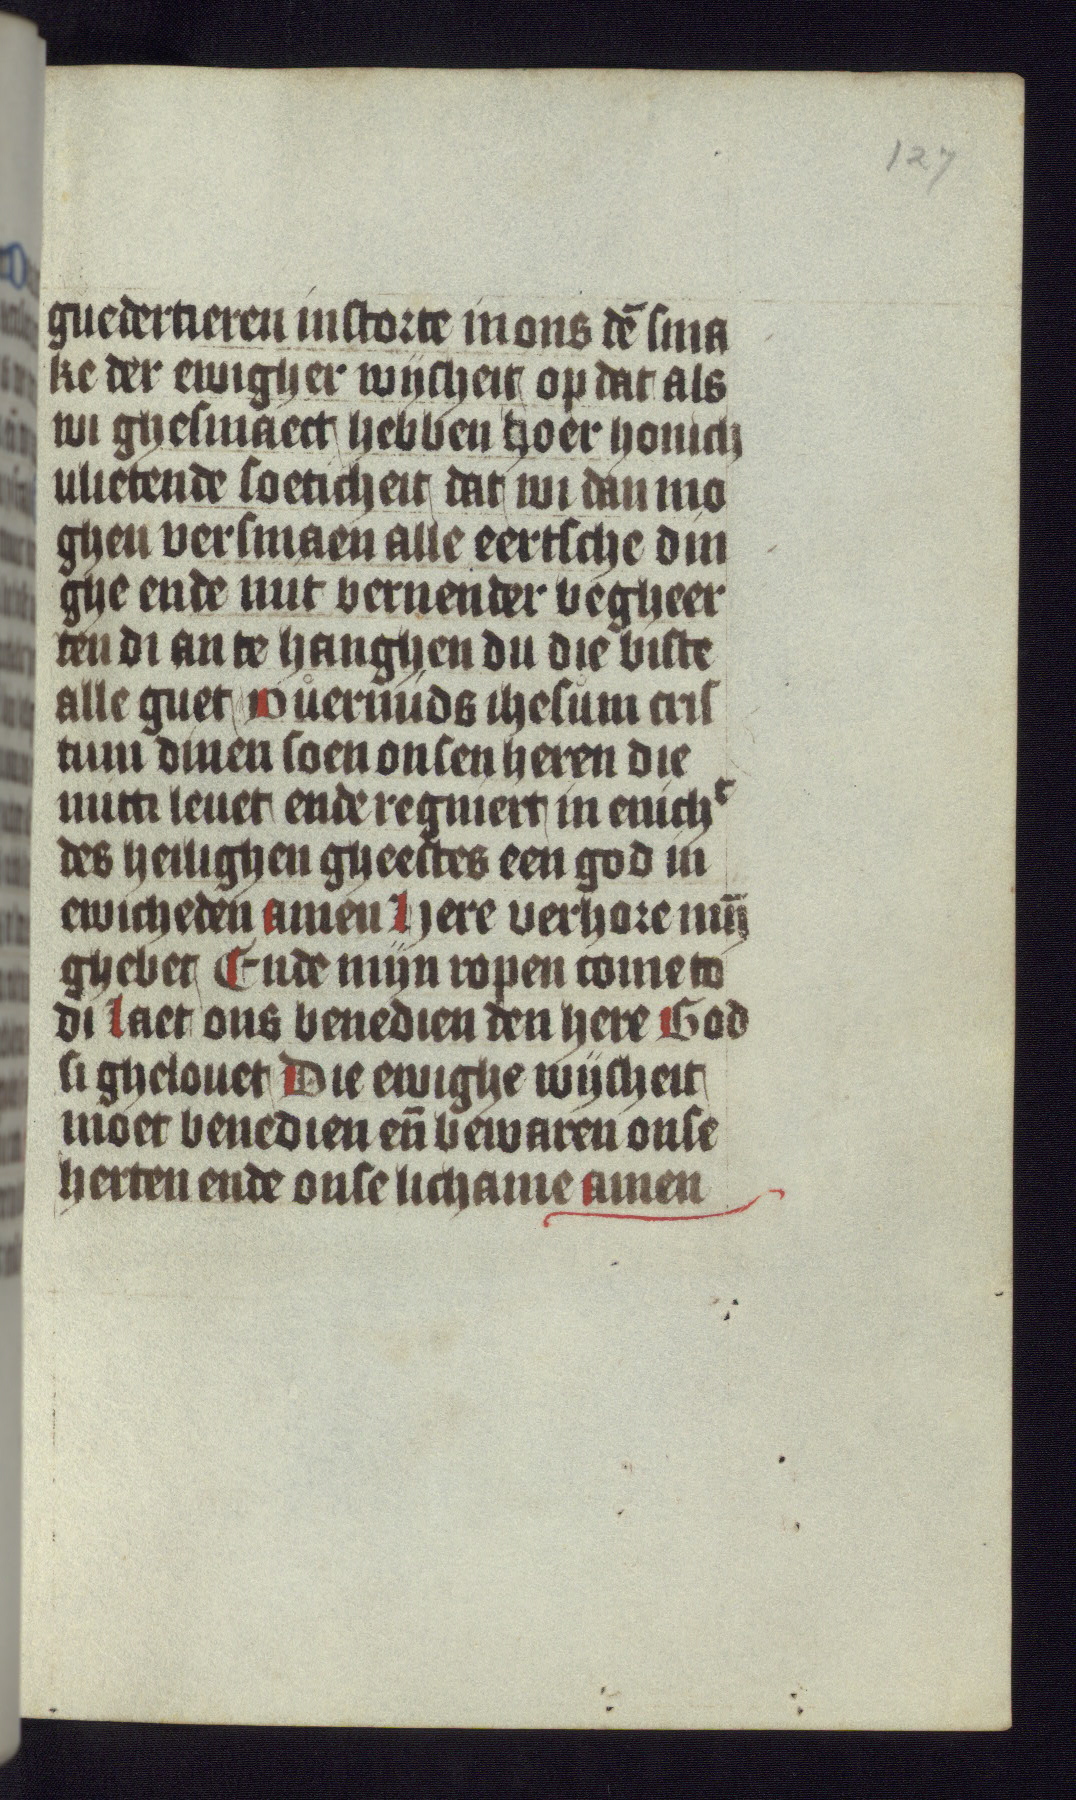 127
guedertieren instorte in ons dē sma
ke der ewigher wijsheit op dat als
wi ghesmaect hebben hoer honich
vlietende soeticheit dat wi dan mo
ghen versmaen alle eertsche din
ghe ende mit bernender begheer
ten di an te hanghen du die biste
alle guet Ouermids ihesum cris
tum dinen soen onsen heren die
mitti leuet ende regniert in enichᵗ
des heilighen gheestes een god in
ewicheden amen Here verhore mīj
ghebet Ende mijn ropen come to
di laet ons benedien den here God
si ghelouet Die ewighe wijsheit
moet benedien eñ bewaren onse
herten ende onse lichame amen